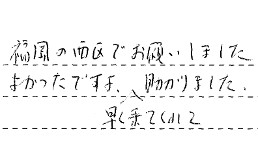 福岡の西区でお願いしました
よかったですよ、助かりました。
早く来てくれて